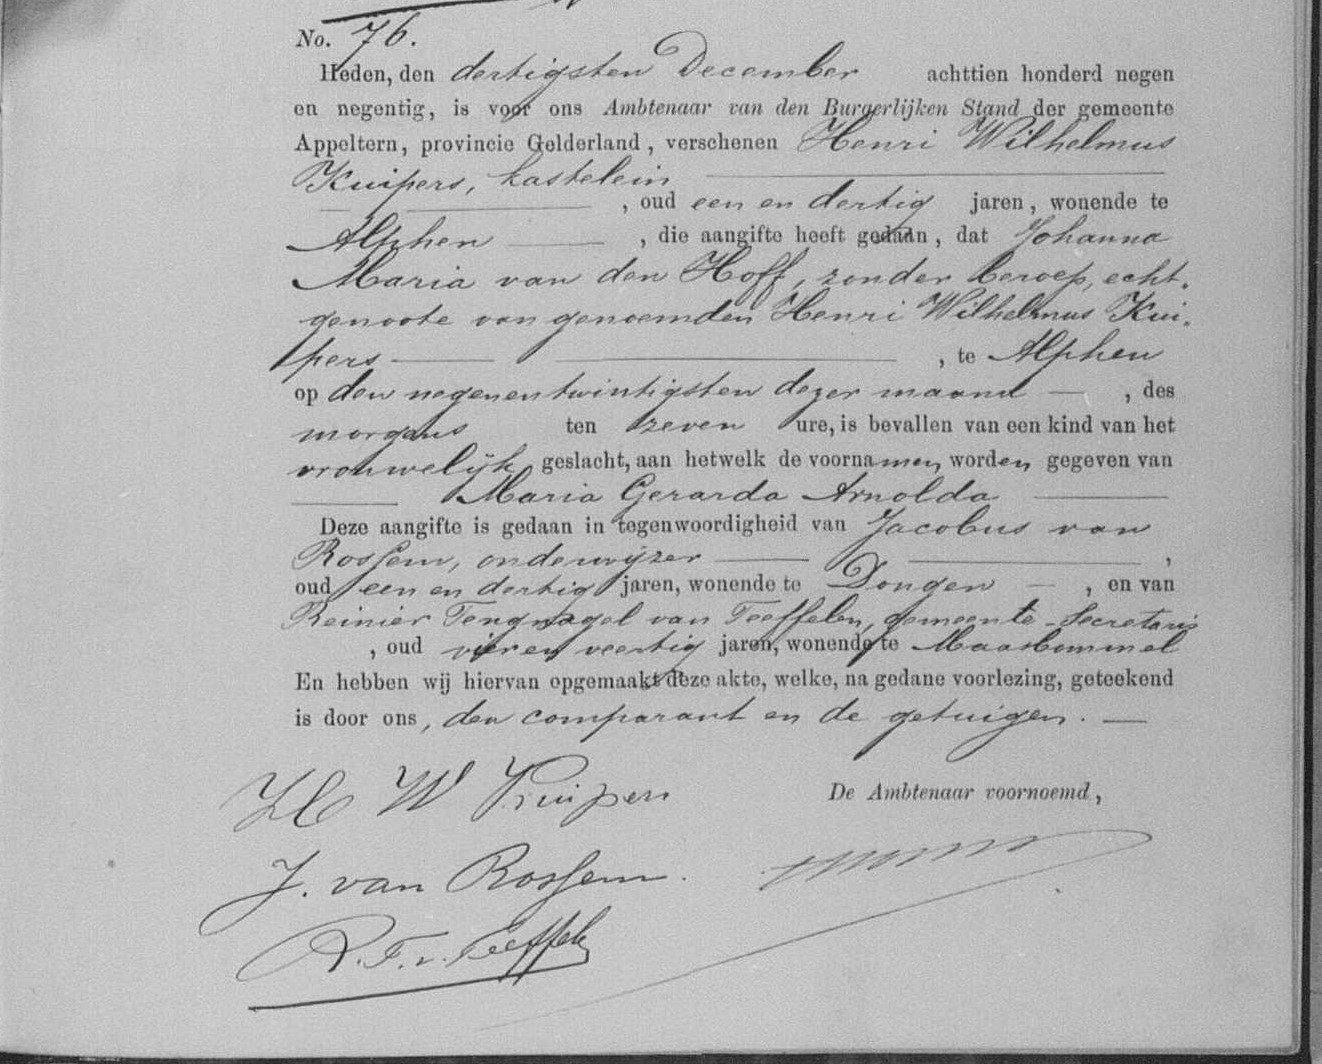 No. 76.
Heden, den dertigsten December achttien honderd negen
en negentig, is voor ons Ambtenaar van den Burgerlijken Stand der gemeente
Appeltern, provincie Gelderland, verschenen Henri Wilhelmus
Kuipers, kastelein
, oud een en dertig jaren, wonende te
Alphen , die aangifte heeft gedaan, dat Johanna
Maria van den Hoff, zonder beroep, echt-
genoote van genoemden Henri Wilhelmus Kui-
pers , te Alphen
op den negenentwintigsten dezer maand , des
morgens ten zeven ure, is bevallen van een kind van het
vrouwelijk geslacht, aan hetwelk de voornamen worden gegeven van
Maria Gerarda Arnolda
Deze aangifte is gedaan in tegenwoordigheid van Jacobus van
Rossem, onderwijzer ,
oud een en dertig jaren, wonende te Dongen , en van
Reinier Tengnagel van Teeffelen, gemeente-Secretaris
, oud vier en veertig jaren, wonende te Maasbommel
En hebben wij hiervan opgemaakt deze akte, welke, na gedane voorlezing, geteekend
is door ons, den comparant en de getuigen.
H W Kuipers
De Ambtenaar voornoemd,
J. van Rossem.
R. T. v. Teeffelen